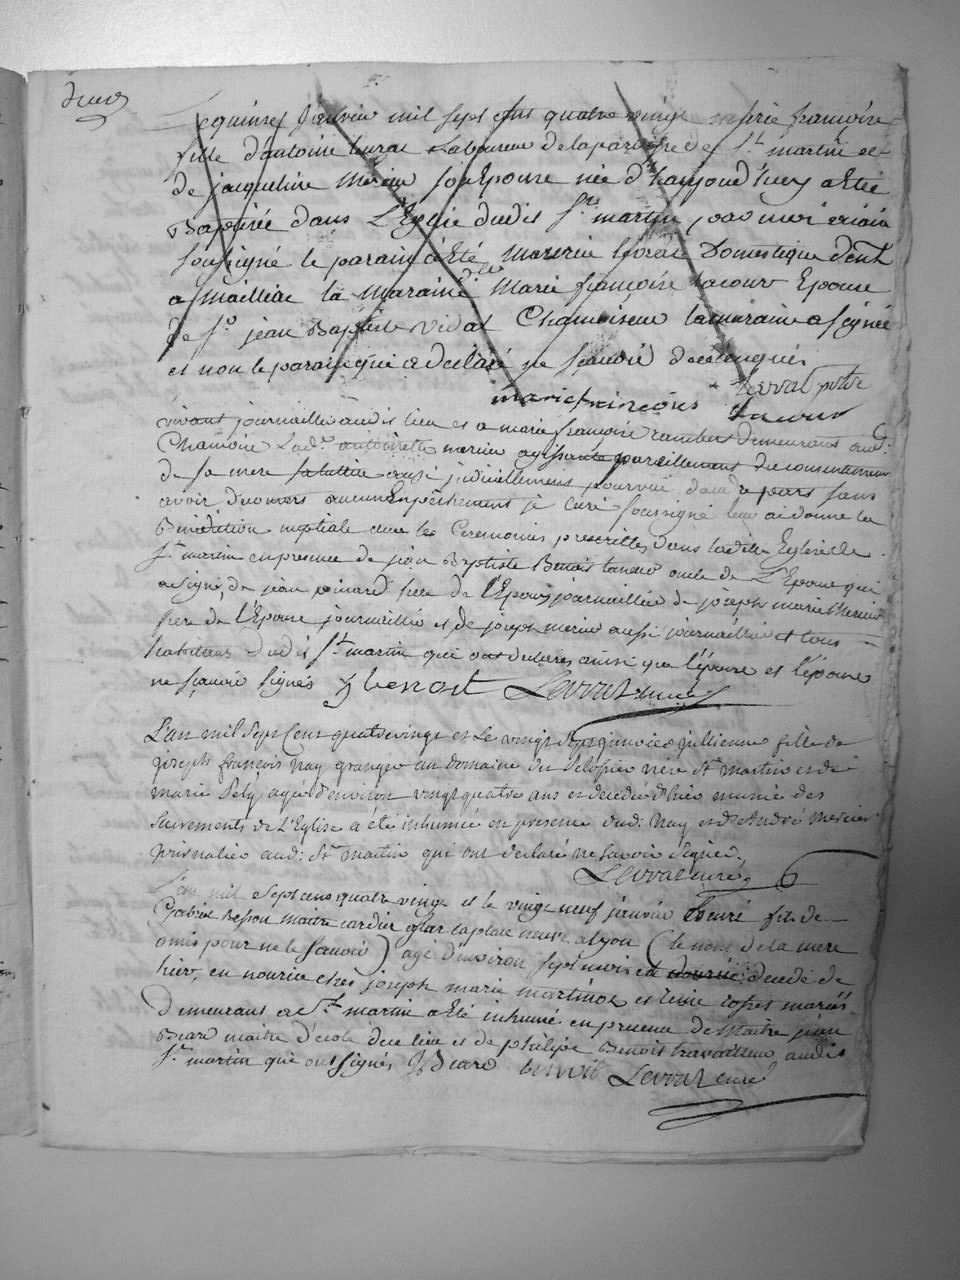 deux
Le quinze janvier mil sept cent quatre vingt marie françoise
fille d'antoine Laboureur de la paroisse de St martin et
de jacqueline Mercier son Epouse née d'haujourd'huy a Eté
Baptisée dans L'Eglise dudit St martin par moi vicaire
soussigné le parain a Eté Domestique dent
a Mailliac la maraine dlle Marie françoise Lacour Epouse
de Sr jean Baptiste Vidal Chamoiseur la maraine a signée
et non le parain qui a declaré ne sçavoir de ce enquis
marie françoise Lacour Levrat ptre
vivant journaillié audit lieu et a marie françoise rambert demeurant aud:
Chamoire Lade antoinette mercier agissante pareillement du consentement
de sa mere aussi judiciellement pourvue de part sans
avoir decouvert aucun Empêchement je curé soussigné leur ai donné la
Benediction nuptiale avec les Ceremonies prescrittes dans ladite Eglise de
St martin en presence de jean Baptiste Benoit oncle de L'Epouse qui
a signé, de jean pinard frere de l'Epoux journaillié de joseph marie Mercier
frere de l'Epouse journaillié et de joseph mercier aussi journaillié et tous
habitans dudit St martin qui ont declarés ainsi que l'époux et l'épouse
ne sçavoir signés J benoit Levrat curé
L'an mil sept cent quatrevingt et le vingt sept janvier jullienne fille de
joseph françois Nay granger au domaine du rière St martin et de
marie Pely agée d'environ vingt quatre ans et decedée d'hier munie des
Sacrements de L'Eglise a été inhumée en presence dud: Nay et d'André Mercier
aud: St martin qui ont declaré ne savoir signer.
Levrat curé
L'an mil sept cens quatre vingt et le vingt neuf janvier fils de
Gabriel Besson maitre cardier sur la place neuve a Lyon (le nom de la mere
omis pour ne le sçavoir) agé d'environ sept mois est decedé de
hier, en nourice chés joseph marie martinod et mariés
demeurant a St martin a Eté inhumé en presence de Maitre jean
Beard maitre d'école de ce lieu et de philipe Benoit travailleur audit
St martin qui ont signés J Beard benoit Levrat curé